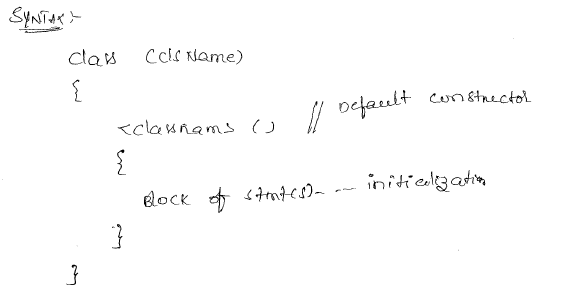 SYNTAX:-
class (clsName)
{
<classname> () // Default constructor
{
Block of stmt(s)- -- initialization
}
}